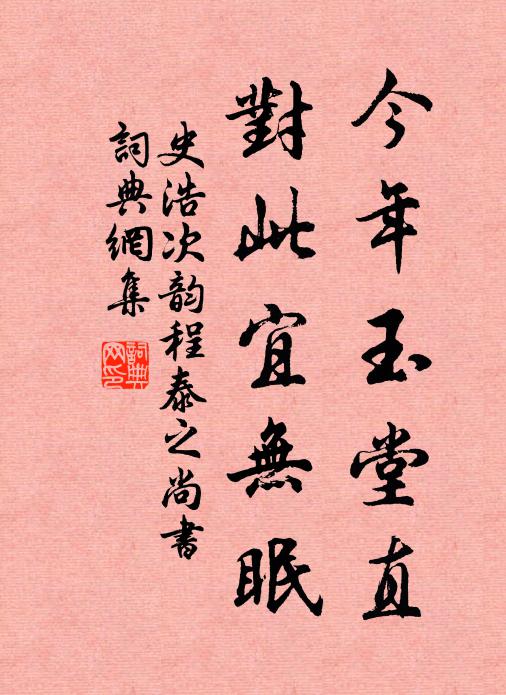 今年玉堂直
對此宜無眠
史浩次韵程泰之尚書
詞典網集
詞典
网印